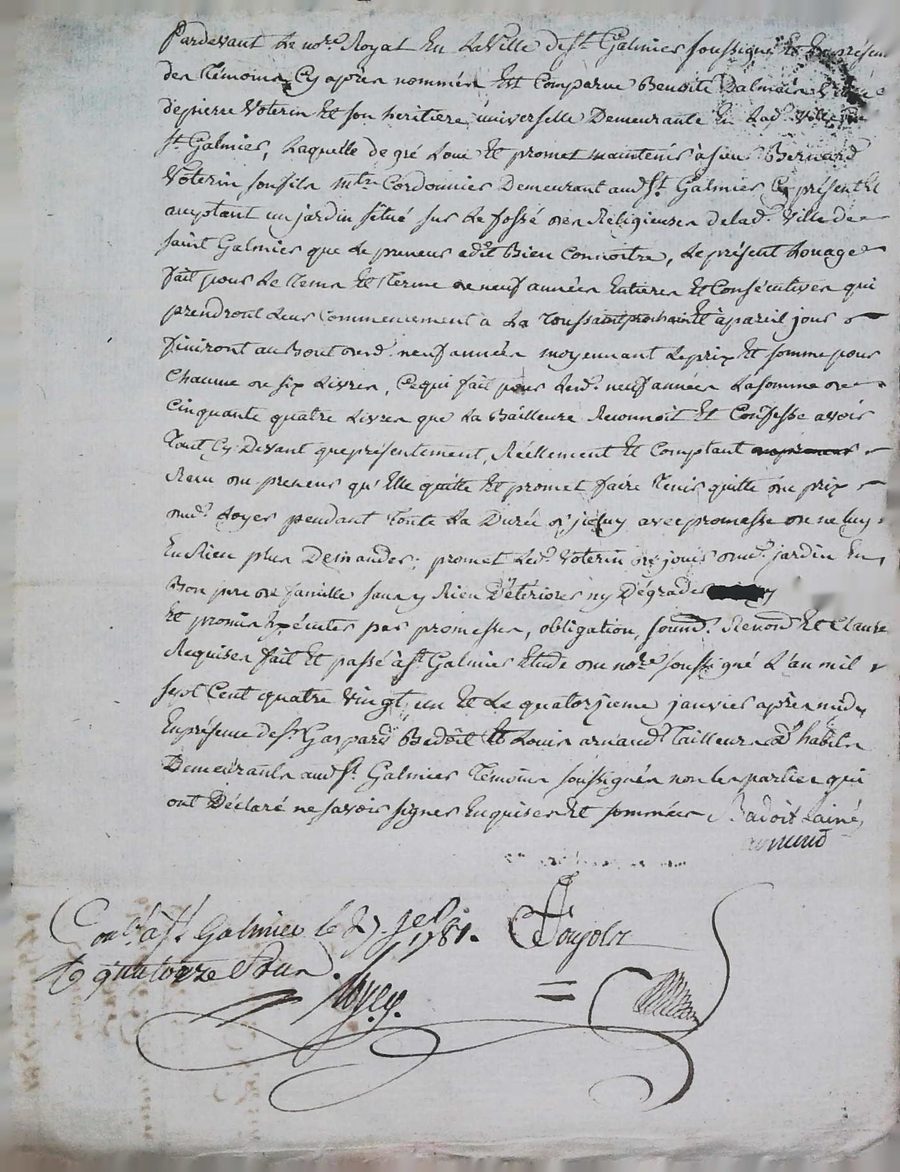 Pardevant Le no.re Royal En La Ville de S.t Galmier soussigné Et En présence
des Témoins Cy après nommés Est Comparue Benoite Dalmais Veuve
de pierre Voterin Et son heritiere universelle Demeurante En lad. Ville de
S.t Galmier, Laquelle de gré Loue Et promet maintenir à sieur Bernard
Voterin son fils m.tre Cordonnier Demeurant aud. S.t Galmier Cy présent Et
acceptant un jardin situé sur Le fossé des Religieuses de lad. Ville de
saint Galmier que Le preneur a dit Bien Connoitre, Le présent Louage
fait pour Le Tems Et Terme de neuf années Entieres Et Consécutives qui
prendront Leur Commencement à La Toussaint prochaine Et à pareil jour
finiront au Bout desd. neuf années moyennant Le prix Et somme pour
Chacune de six Livres, Ce qui fait pour Lesd. neuf années La somme de
Cinquante quatre Livres que La Bailleure Reconnoit Et Confesse avoir
Tout Cy Devant que présentement, Réellement Et Comptant
Reçu du preneur qu'Elle quitte Et promet faire Tenir quitte du prix
dud. Loyer pendant Toute La Durée d'jceluy avec promesse de ne luy
En Rien plus Demander; promet Led. Voterin de jouir dud. jardin En
Bon pere de famille sans y Rien Déteriorer ny Dégrader
Et promis Exécuter par promesses, obligation, soumd. Renond. Et Clause
Requises fait Et passé à S.t Galmier Etude du no.re soussigné L'an mil
sept Cent quatre vingt un Et Le quatorzieme janvier après midy
En présence de S.r Gaspard Badoit Et Louis arnaud Tailleurs d'habits
Demeurants aud. S.t Galmier Temoins soussignés non Les parties qui
ont Déclaré ne savoir signer Enquises Et sommées Badoit Lainé
arnaud
Con.lé à S.t Galmier le 27 jer 1781.
quatorze sous